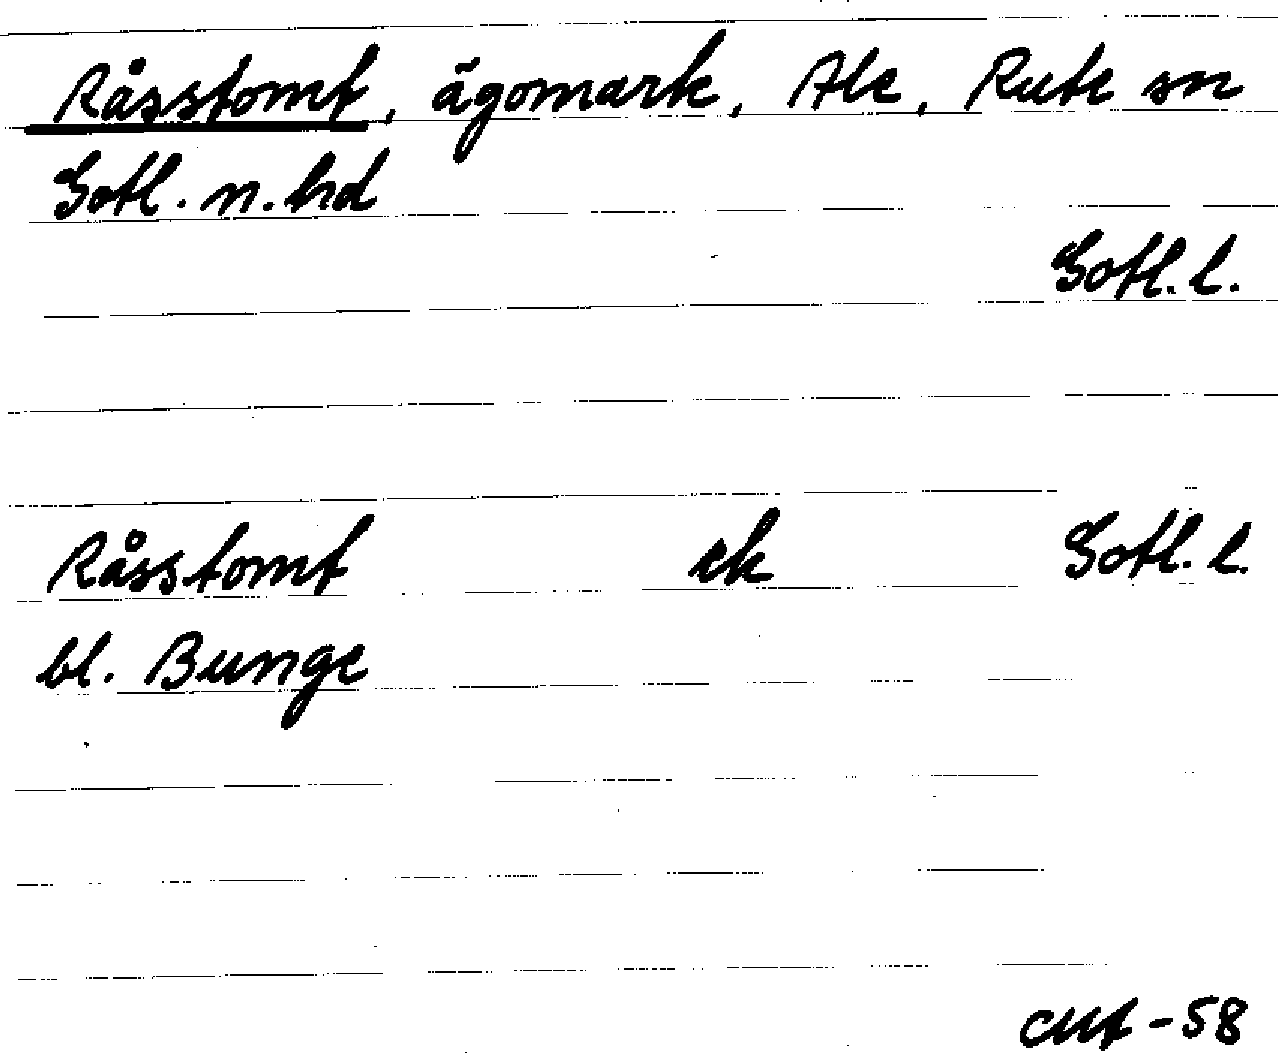 Råsstomt, ägomark, Ale, Rute sn
Gotl. n. hd
Gotl. l.
Råsstomt ek Gotl. l.
bl. Bunge
-58